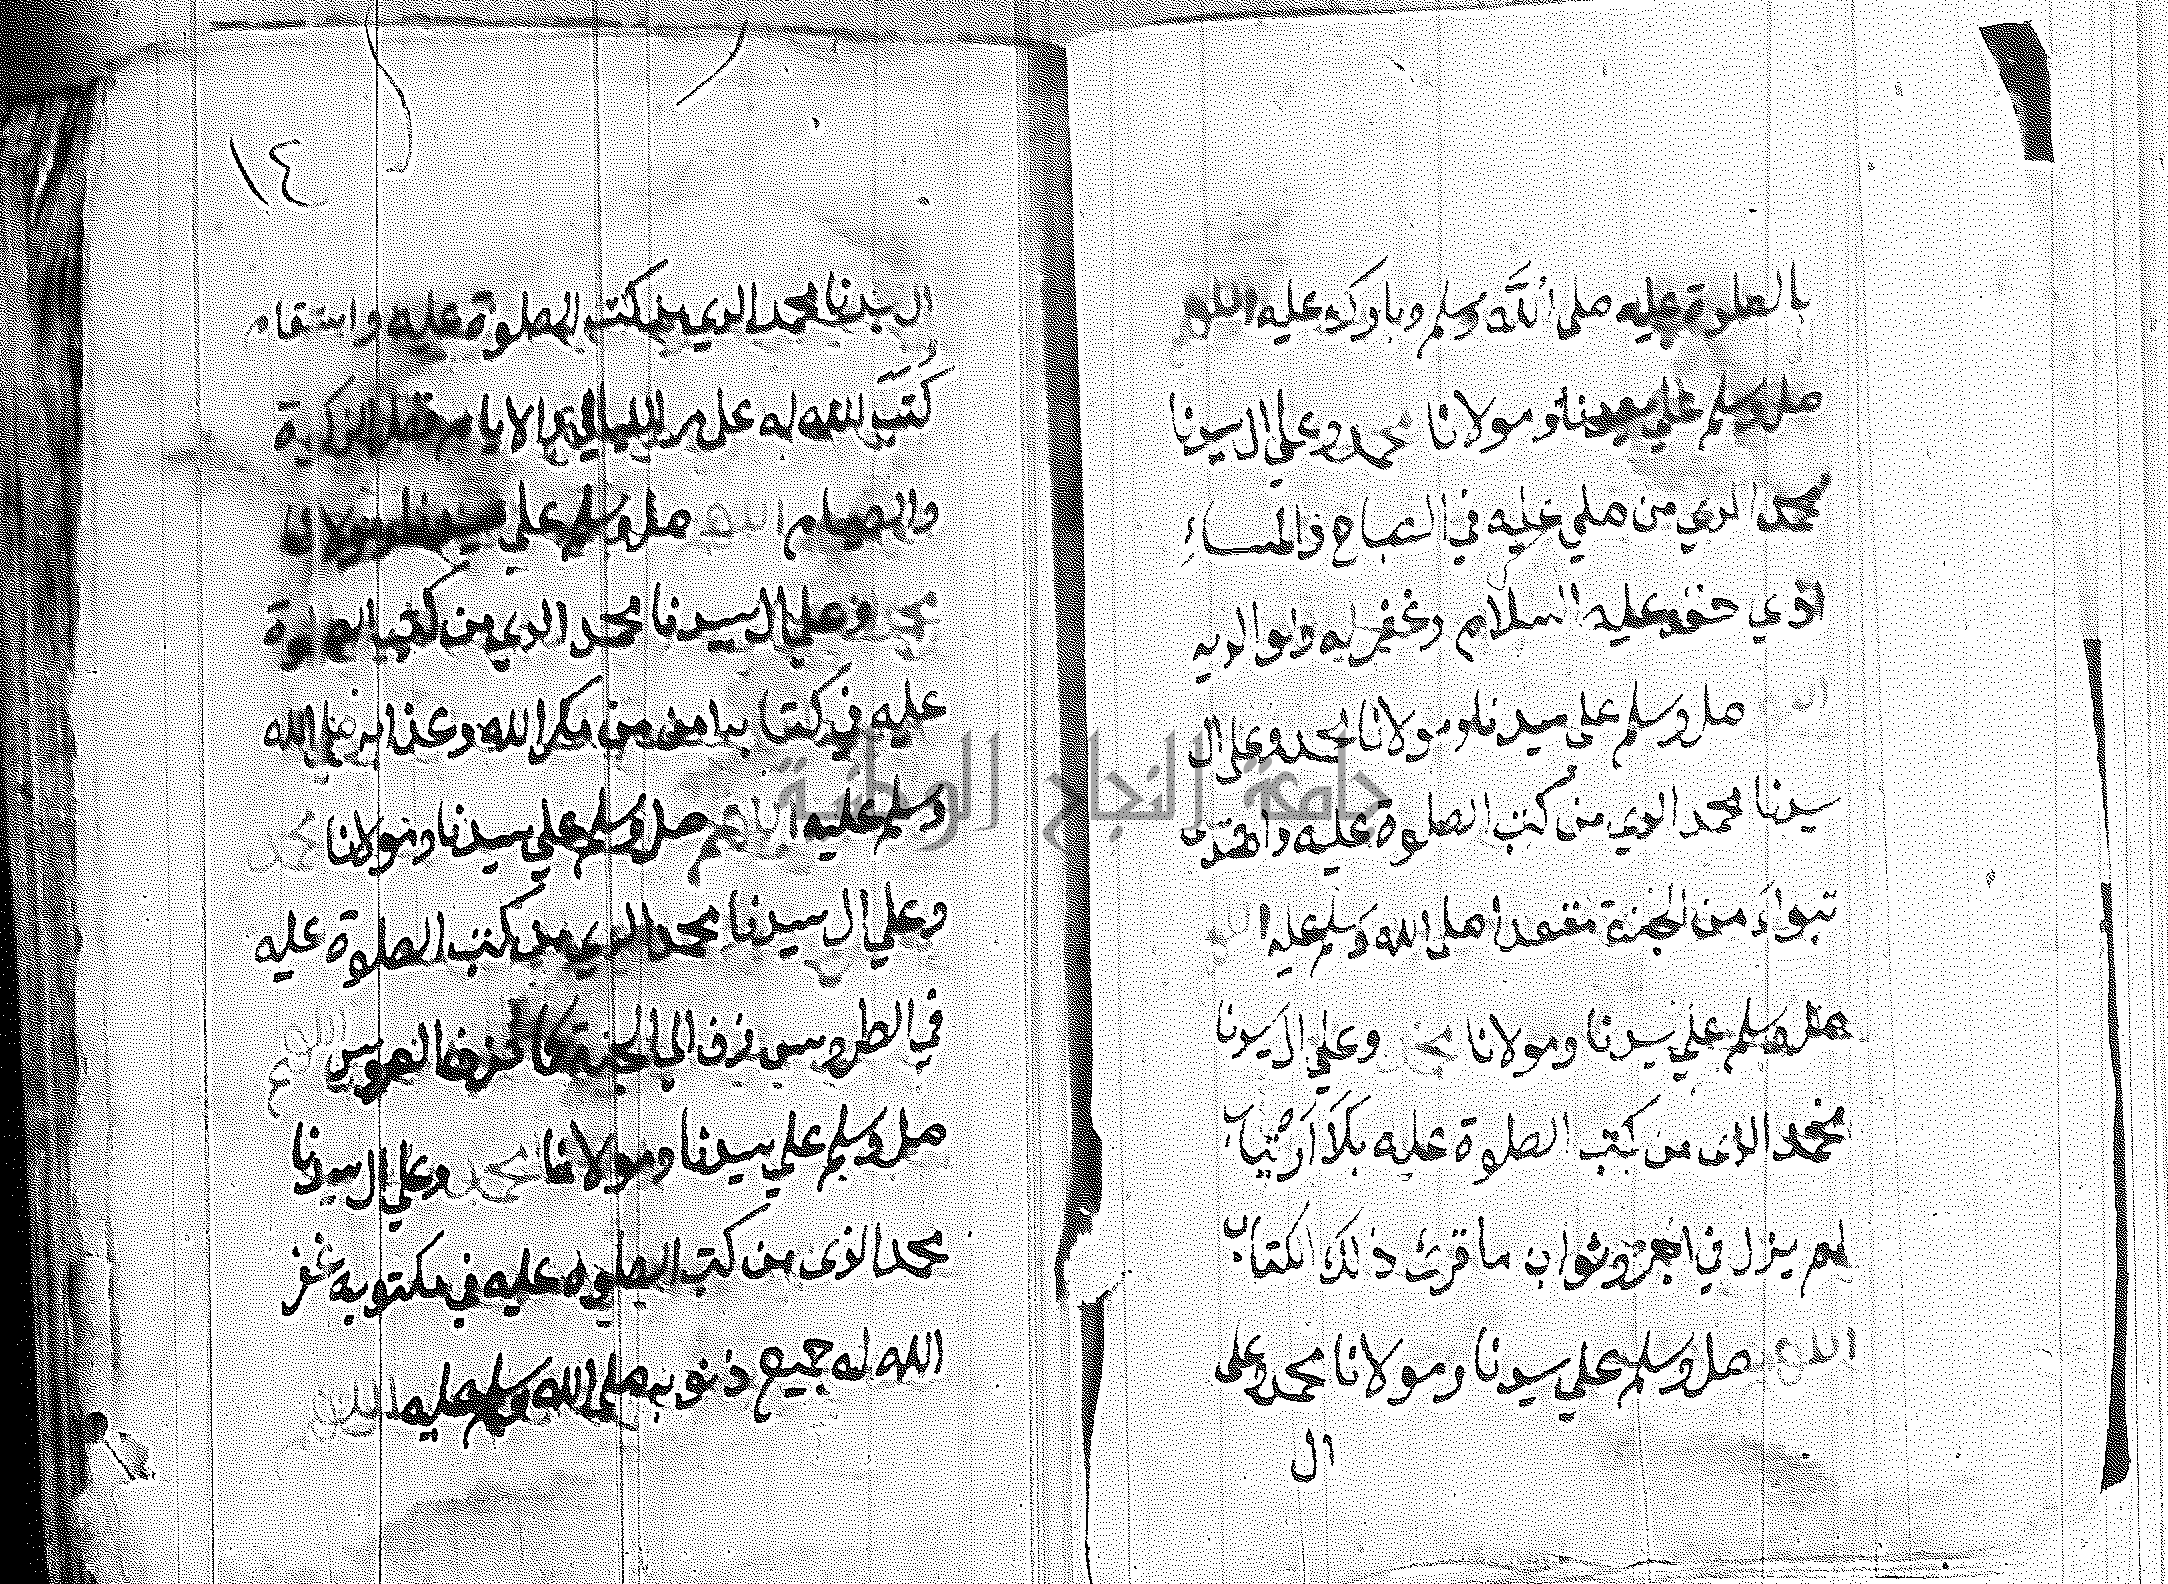 بالصلوة عليه صلى الله وسلم وبارك عليه اللهم
صل وسلم على سيدنا ومولانا محمد وعلي ال سيدنا
محمد الذي من صلي عليه في الصباح والمساء
ادي حقه عليه السلام وغفر له ولوالديه
صل وسلم على سيدنا ومولانا محمد وعلى ال
سيدنا محمد الذي من كتب الصلوة عليه واهتدى
تبواء من الجنة مقعدا صلى الله وسلم عليه
صل وسلم علي سيدنا ومولانا محمد وعلي ال سيدنا
محمد الذى من كتب الصلوة عليه بلا ارتياب
لم يزل في اجر وثواب ما قرئ ذلك الكتاب
اللهم صل وسلم علي سيدنا ومولانا محمد وعلى
ال
١٤
ال سيدنا محمد الذي من كتب الصلوة عليه واستقام
كتب الله له علي مر الليالي والايام
صل وسلم علي سيدنا ومولانا
محمد وعلي ال سيدنا محمد الذي من كتب الصلوة
عليه في كتاب امن من مكر الله وعذابه صلي الله
وسلم عليه اللهم صل وسلم علي سيدنا ومولانا محمد
وعلي ال سيدنا محمد الذي من كتب الصلوة عليه
في الطروس زف الي الجنة كما تزف العروس
صل وسلم علي سيدنا ومولانا محمد وعلي ال سيدنا
محمد الذى من كتب الصلوة عليه في مكتوبه غفر
الله له جميع ذنوبه صلي الله وسلم عليه اللهم
جامعة النجاح الوطنية